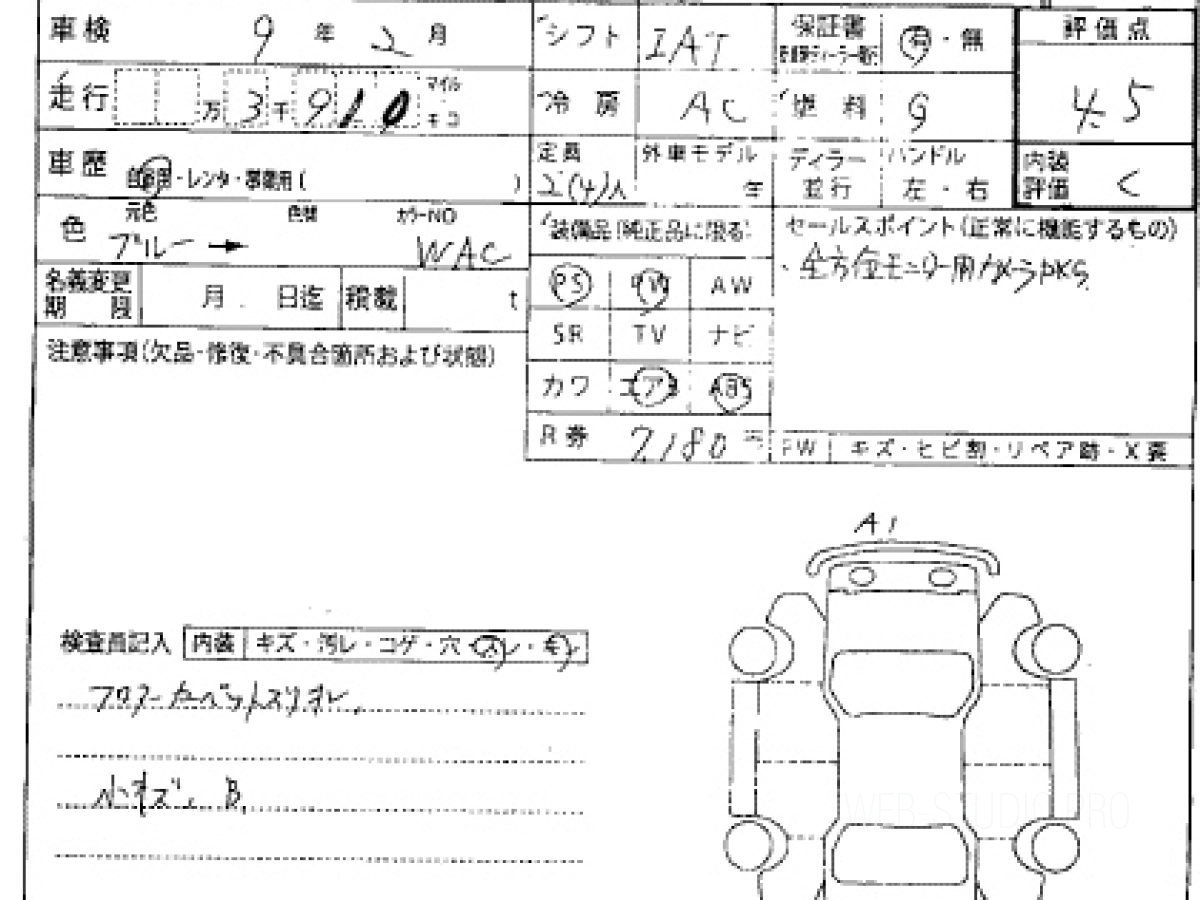 車検 9年 2月
シフト IAT
保証書 有・無
評価点
走行 万 3千 910 マイル キロ
冷房 AC
燃料 G
4.5
車歴 自家用・レンタ・事業用( )
定員 2(4)人
外車モデル 年
ディラー 並行
ハンドル 左・右
内装評価 C
色 元色 ブルー → 色替 カラーNO WAC
装備品(純正品に限る)
セールスポイント(正常に機能するもの)
・全方位モニター用カメラPKG
名義変更期限 月 日迄 積載 t
PS PW AW
SR TV ナビ
カワ エアB ABS
R券 7,180 円
注意事項(欠品・修復・不具合箇所および状態)
FW キズ・ヒビ割・リペア跡・X要
A1
検査員記入 内装 キズ・汚レ・コゲ・穴・スレ・モノ
フロアーカーペットスリキレ
小キズ、B
WEB-STUDIO.PRO